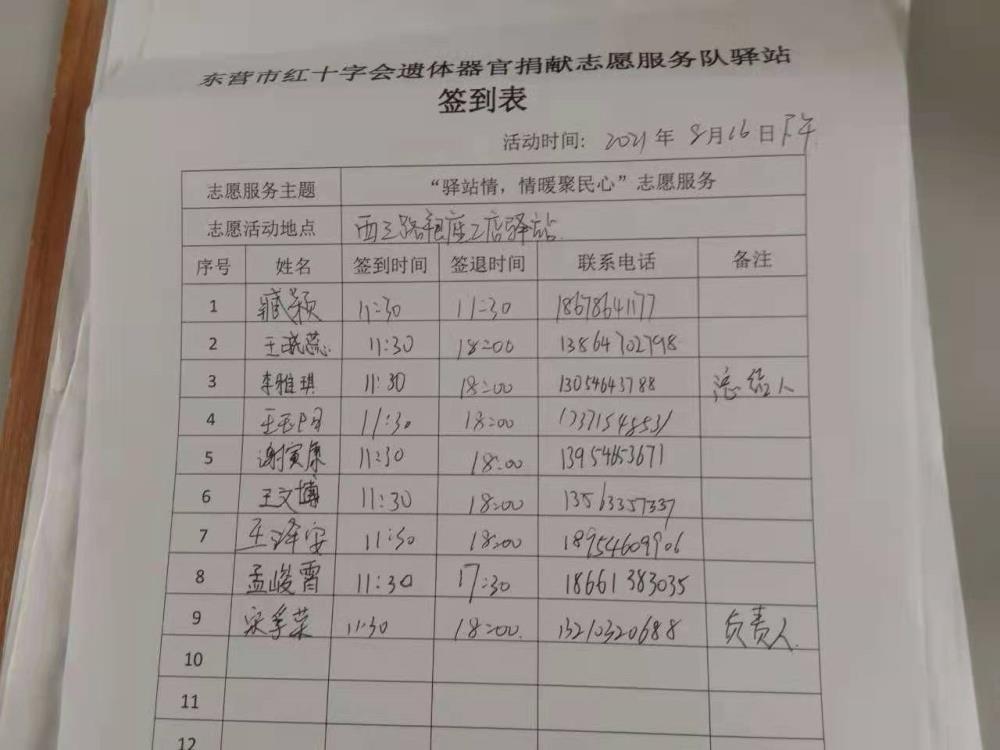 东营市红十字会遗体器官捐献志愿服务队驿站
签到表
活动时间: 2021年 8月16日下午
志愿服务主题 “驿站情，情暖聚民心”志愿服务
志愿活动地点 西三路银座2店驿站
序号 姓名 签到时间 签退时间 联系电话 备注
1 臧颖 11:30 17:30 18678641177
2 王 蕊 11:30 18:00 13864702798
3 李雅琪 11:30 18:00 13054643788 总结人
4 王 11:30 18:00 17371548531
5 谢寅康 11:30 18:00 13954653671
6 王文博 11:30 18:00 13563357337
7 王泽安 11:30 18:00 18954609906
8 孟峻霄 11:30 17:30 18661383035
9 宋 荣 11:30 18:00 13210320688 负责人
10
11
12